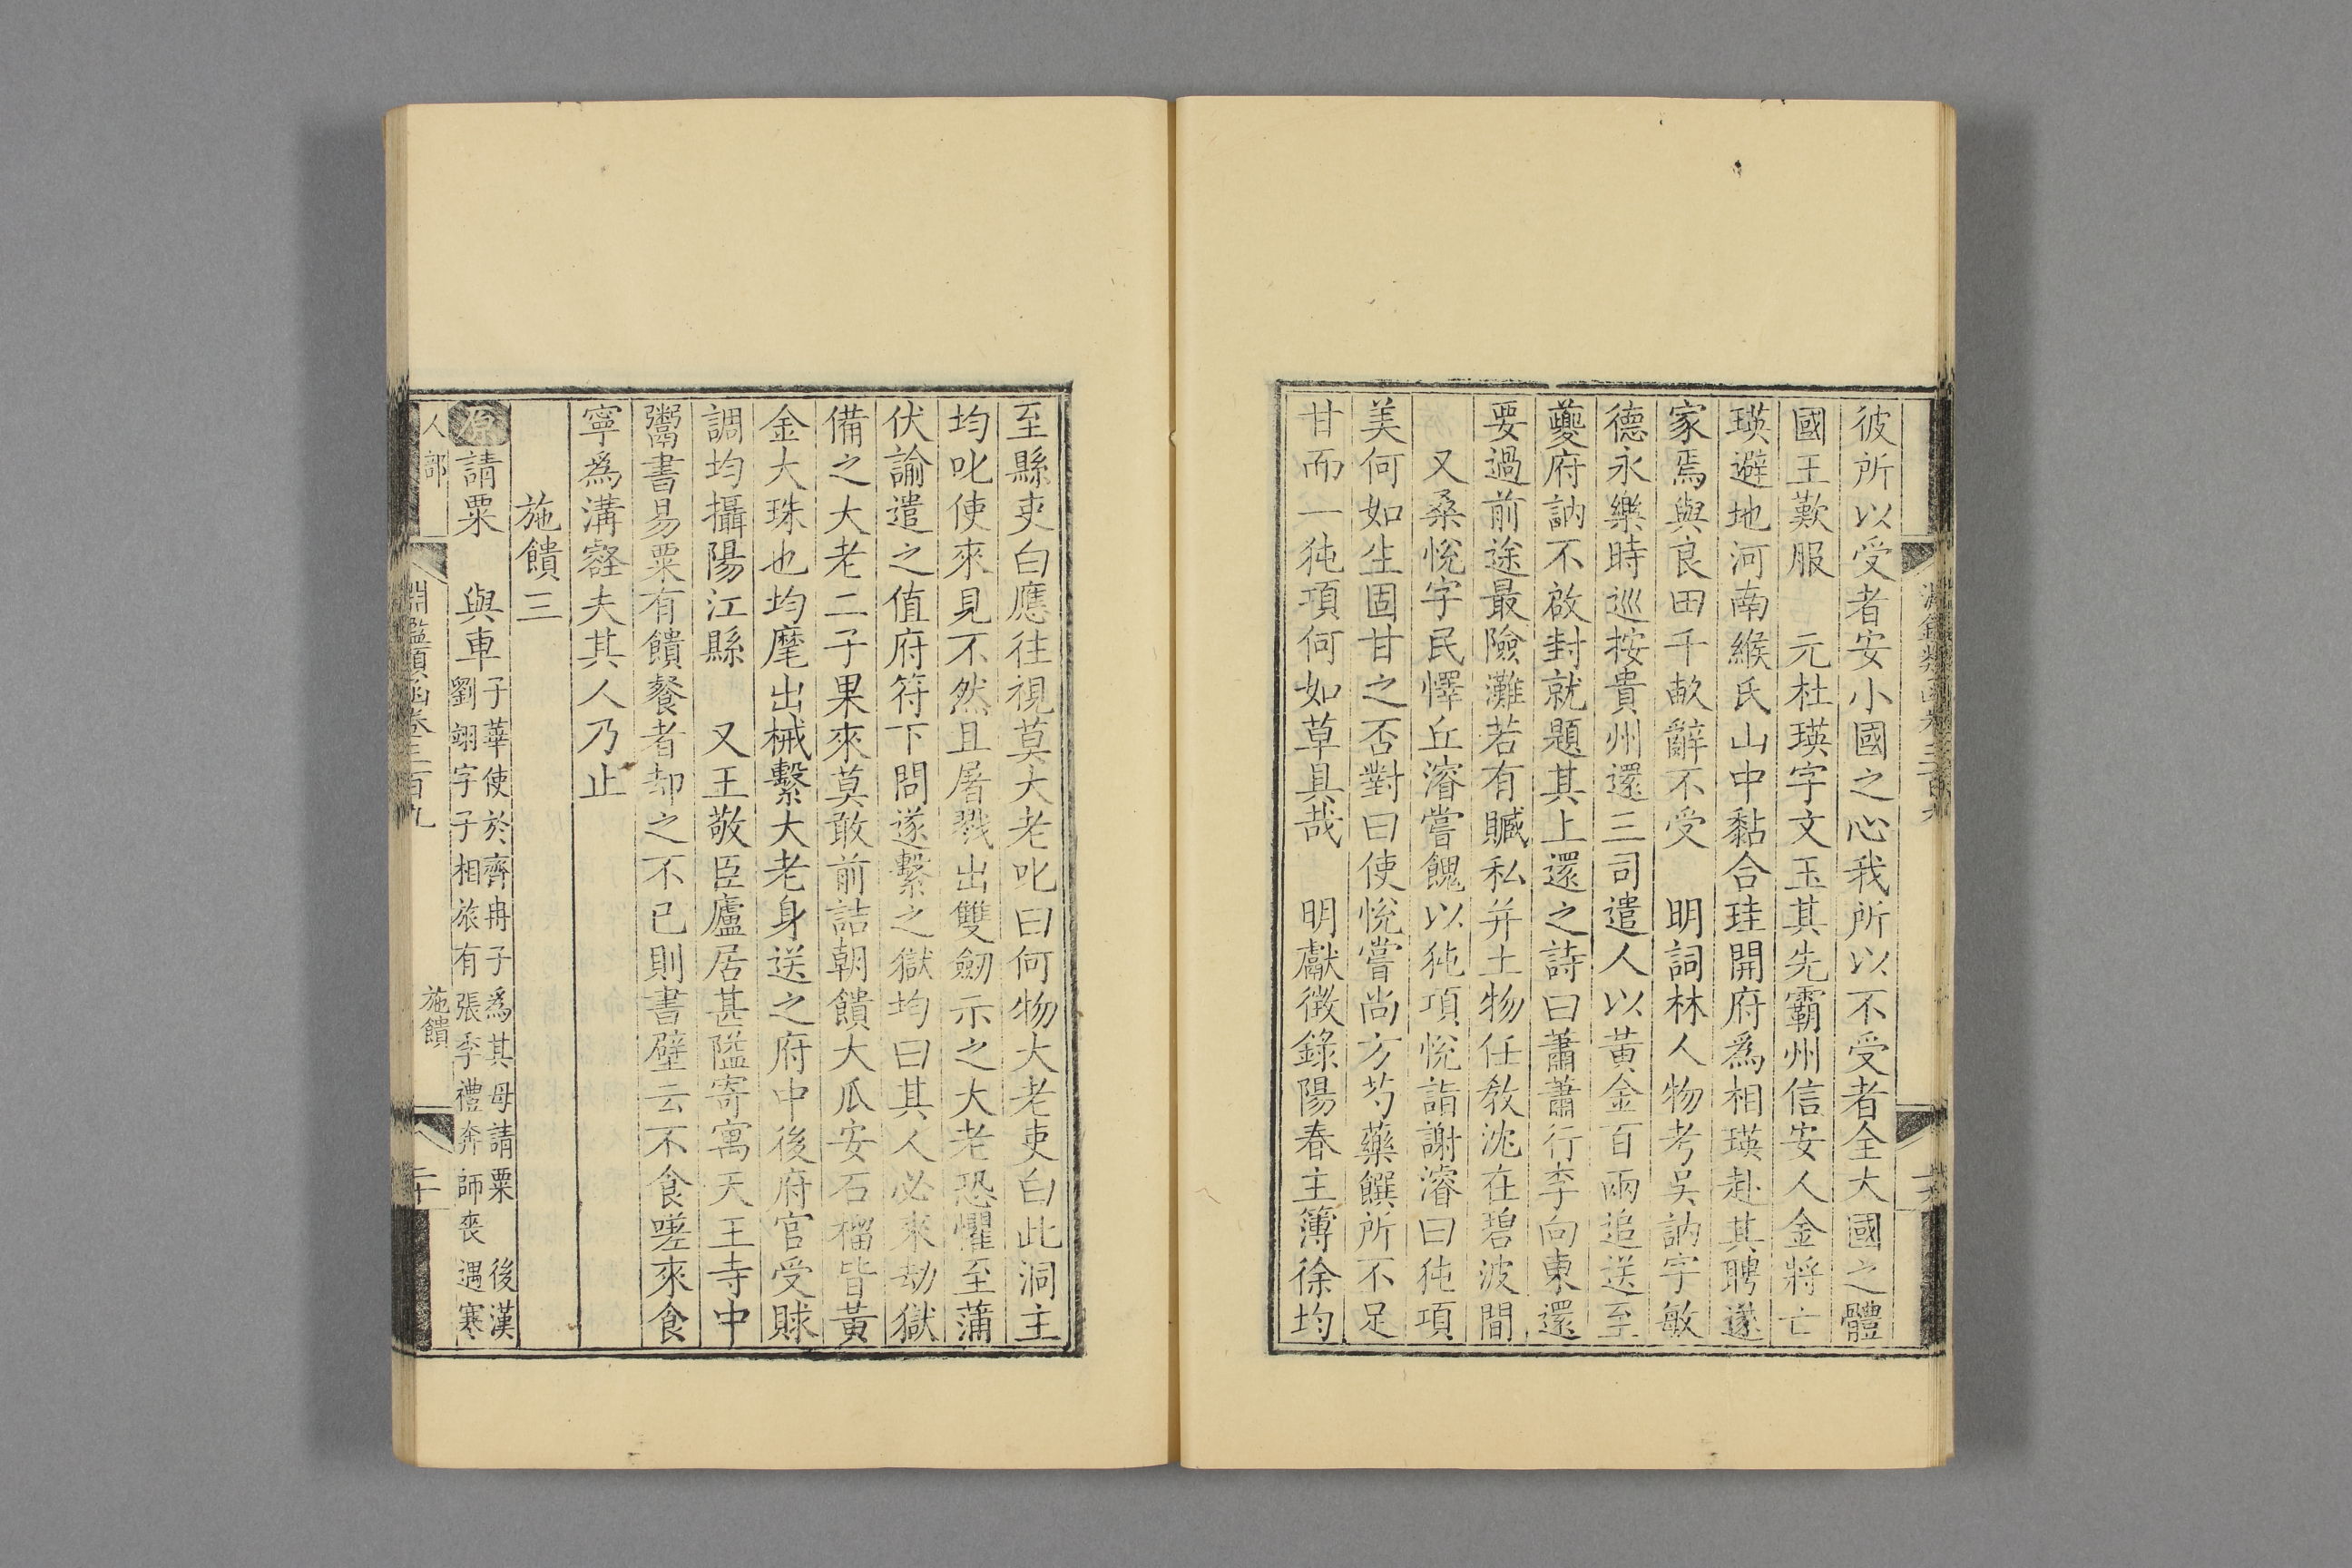 彼所以受者安小國之心我所以不受者全大國之體
國王歎服　元杜瑛字文玉其先霸州信安人金將亡
瑛避地河南緱氏山中黏合珪開府爲相瑛赴其聘遂
家焉與良田千畝辭不受　明詞林人物考吳訥字敏
德永樂時巡按貴州還三司遣人以黃金百兩追送至
夔府訥不啟封就題其上還之詩曰蕭蕭行李向東還
要過前途最險灘若有贓私并土物任教沈在碧波間
又桑悅字民懌丘濬嘗餽以㹠項悅詣謝濬曰㹠項
美何如生固甘之否對曰使悅嘗尚方芍藥饌所不足
甘而一㹠項何如草具哉　明獻徵錄陽春主簿徐均
至縣吏白應往視莫大老叱曰何物大老吏白此洞主
均叱使來見不然且屠戮出雙劒示之大老恐懼至蒲
伏諭遣之值府符下問遂繫之獄均曰其人必來劫獄
備之大老二子果來莫敢前詰朝饋大瓜安石榴皆黃
金大珠也均麾出械繫大老身送之府中後府官受賕
調均攝陽江縣　又王敬臣廬居甚隘寄寓天王寺中
鬻書易粟有饋餐者却之不已則書壁云不食嗟來食
寧爲溝壑夫其人乃止
施饋三
原請粟　與車
子華使於齊冉子爲其母請粟　後漢
劉翊字子相旅有張季禮奔師喪　遇寒
人部
淵鑑類函卷三百九
施饋
二十